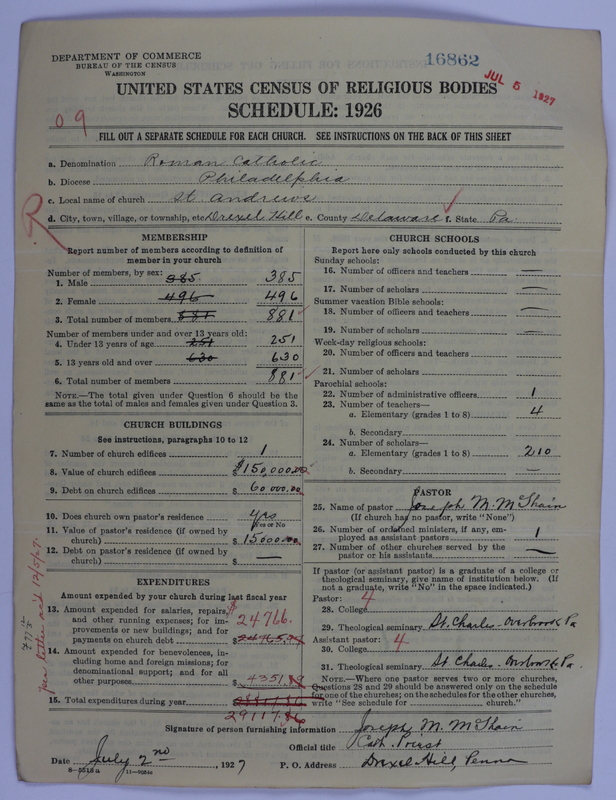 DEPARTMENT OF COMMERCE
BUREAU OF THE CENSUS
WASHINGTON
16862
JUL 5 1927
UNITED STATES CENSUS OF RELIGIOUS BODIES
SCHEDULE: 1926
09
FILL OUT A SEPARATE SCHEDULE FOR EACH CHURCH. SEE INSTRUCTIONS ON THE BACK OF THIS SHEET
a. Denomination Roman Catholic
b. Diocese Philadelphia
c. Local name of church St. Andrews
d. City, town, village, or township, etc. Drexel Hill e. County Delaware f. State Pa.
R
MEMBERSHIP
Report number of members according to definition of
member in your church
Number of members, by sex:
1. Male 385 385
2. Female 496 496
3. Total number of members 881 881
Number of members under and over 13 years old:
4. Under 13 years of age 251 251
5. 13 years old and over 630 630
6. Total number of members 881
NOTE.—The total given under Question 6 should be the
same as the total of males and females given under Question 3.
CHURCH BUILDINGS
See instructions, paragraphs 10 to 12
7. Number of church edifices 1
8. Value of church edifices $150,000.00
9. Debt on church edifices $ 60000.00
10. Does church own pastor's residence? Yes
Yes or No
11. Value of pastor's residence (if owned by
church) $ 15000.00
12. Debt on pastor's residence (if owned by
church) $ —
EXPENDITURES
Amount expended by your church during last fiscal year
13. Amount expended for salaries, repairs,
and other running expenses; for im-
provements or new buildings; and for
payments on church debt $ 24766.
14. Amount expended for benevolences, in-
cluding home and foreign missions; for
denominational support; and for all
other purposes $ 4351
15. Total expenditures during year $
29117
per letter
CHURCH SCHOOLS
Report here only schools conducted by this church
Sunday schools:
16. Number of officers and teachers —
17. Number of scholars —
Summer vacation Bible schools:
18. Number of officers and teachers —
19. Number of scholars —
Week-day religious schools:
20. Number of officers and teachers
21. Number of scholars
Parochial schools:
22. Number of administrative officers 1
23. Number of teachers—
a. Elementary (grades 1 to 8) 4
b. Secondary
24. Number of scholars—
a. Elementary (grades 1 to 8) 210
b. Secondary —
PASTOR
25. Name of pastor Joseph M. McShain
(If church has no pastor, write "None")
26. Number of ordained ministers, if any, em-
ployed as assistant pastors 1
27. Number of other churches served by the
pastor or his assistants —
If pastor (or assistant pastor) is a graduate of a college or
theological seminary, give name of institution below. (If
not a graduate, write "No" in the space indicated.)
Pastor: 4
28. College
29. Theological seminary St. Charles - Overbrook Pa
Assistant pastor: 4
30. College
31. Theological seminary St. Charles - Overbrook Pa.
NOTE.—Where one pastor serves two or more churches,
Questions 28 and 29 should be answered only on the schedule
for one of the churches; on the schedules for the other churches,
write "See schedule for church."
Signature of person furnishing information Joseph M. McShain
Official title Cath. Priest
Date July 2nd, 1927 P. O. Address Drexel Hill, Penna